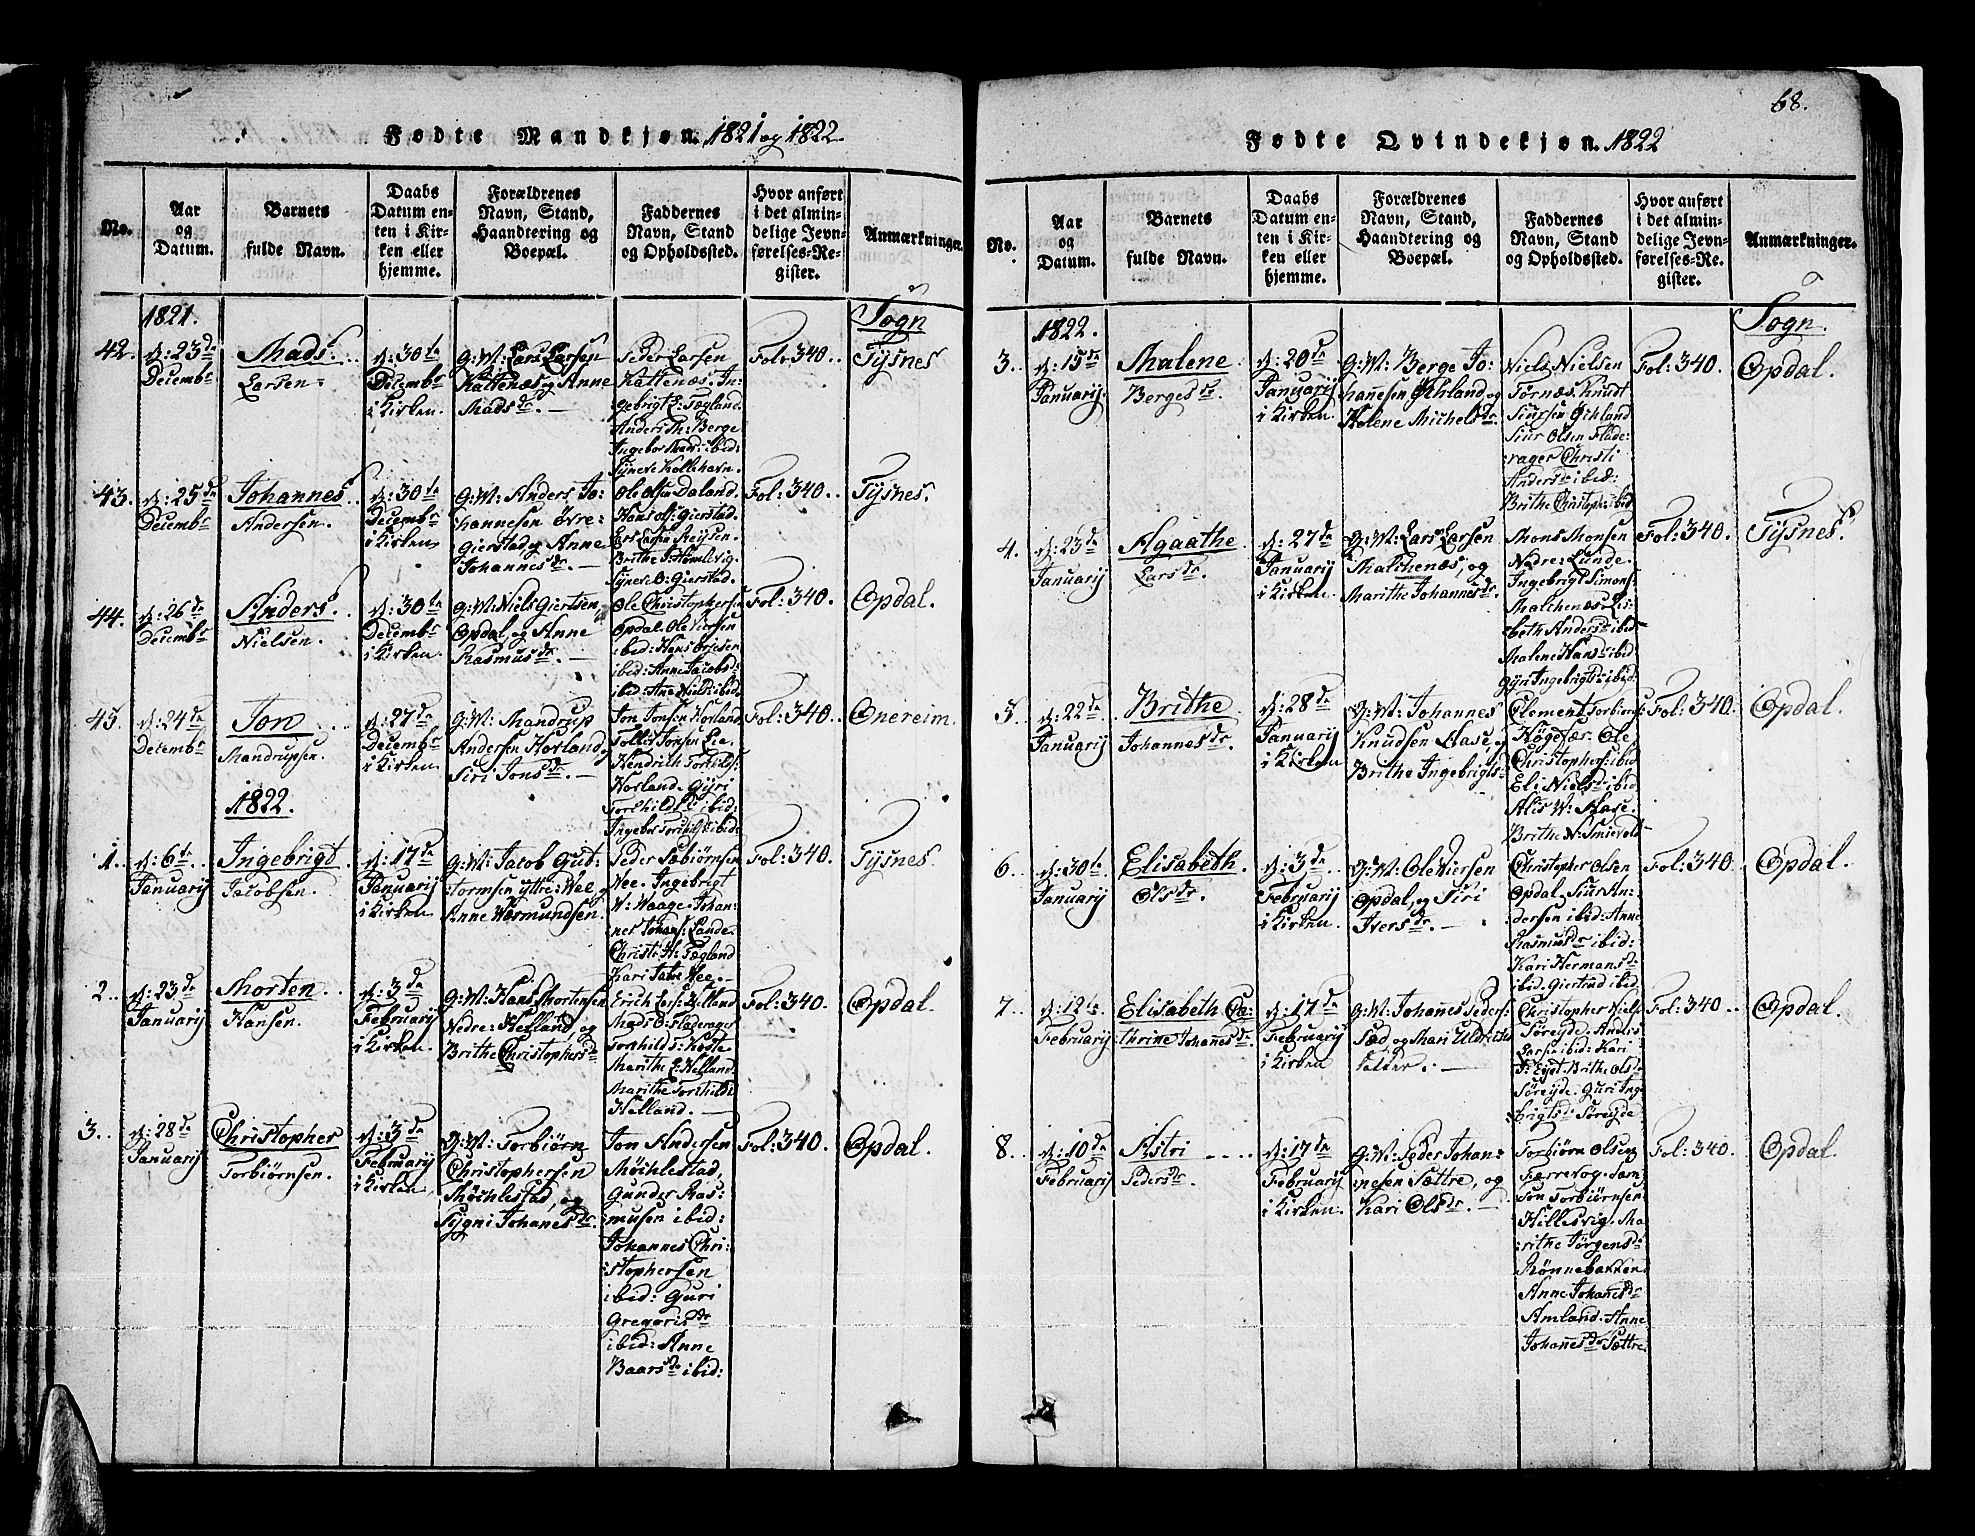 Fødte Mandkjøn. 1821 og 1822.
No.
Aar
og
Datum.
Barnets
fulde Navn.
Daabs
Datum en-
ten i Kir-
ken eller
hjemme.
Forældrenes
Navn, Stand,
Haandtering og
Boepæl.
Faddernes
Navn, Stand
og Opholdssted.
Hvor anført
i det almin-
delige Jevn-
førelses-Re-
gister.
Anmærkninger.
Sogn
1821.
42.
d: 23de
Decembr
Mads
Larsen
d: 30te
Decembr
i Kirken.
G: M: Lars Larsen
Kattenæs og Anne
Madsdr.
Peder Larsen
Kattenæs. In-
gebrigt L: Tegland.
Anderi Th: Berge
Ingebor Mads: ibid:
Syneve Kollehavn.
Fol: 340.
Tysnes
43.
d: 25de
Decembr
Johannes
Andersen.
d: 30te
Decembr
i Kirken
G: M: Anders Jo-
hannesen Øvre-
Gierstad og Anne
Johannesdr.
Ole Olsen Daland.
Hans Ols: Gierstad.
Lars Larsen
Brithe J:
Synevi O: Gierstad.
Fol: 340.
Tysnes.
44.
d: 26de
Decembr
Anders
Nielsen.
d: 30te
Decembr
i Kirken.
G: M: Niels Giertsen,
Opdal, og Anne
Rasmusdr.
Ole Christophersen
Opdal. Ole Viersen
ibid: Hans
ibid: Anne Jacobsd:
ibid: Ane Niels: ibid.
Fol: 340.
Opdal.
45.
d: 24de
Decembr
Jon
Mandrupsen.
d: 27de
Decembr
i Kirken
G: M: Mandrup
Andersen Horland og
Siri Jonsdr.
Jon Jonsen Horland
Tollev Jonsen Lie.
Hendrith Torkilds:
Horland. Gyri
Torkildsdr ibid:
Ingebor Torkilsdr ibid:
Fol: 340.
Onereim.
1822.
1.
d: 6te
Januarij
Ingebrigt
Jacobsen.
d: 17de
Januarij
i Kirken
G: M: Jacob Gut-
tormsen Yttre: Vee og
Anne Wærmundsen.
Peder Sæbiørnsen
Vee. Ingebrigt
W: Waage. Johan-
nes Johans: Lande.
Christi H: Tegland
Kari Vee.
Fol: 340.
Tysnes.
2.
d: 23de
Januarij
Morten
Hansen.
d: 3de
Februarij
i Kirken.
G: M: Hans Mortensen
Nedre: Helland, og
Brithe Christophersdr
Erich Lars: Helland
Mads O: Fladerager
Torkild S: Hodte
Marithe L: Helland.
Marithe Torkilds:
Helland.
Fol: 340.
Opdal.
3.
d: 28de
Januarij
Christopher
Torbiørnsen.
d: 3de
Februarij
i Kirken
G: M: Torbiørn
Christophersen
Møchlestad, og
Sygni Johanesdr.
Jon Andersen
Møchlestad,
Gunder Ras-
musen ibid:
Johannes Chri-
stophersen
ibid: Guri
Gregorisdr
ibid: Anne
Baarsdr ibid:
Fol: 340.
Opdal.
68.
Fødte Qvindekjøn. 1822
No.
Aar
og
Datum.
Barnets
fulde Navn.
Daabs
Datum en-
ten i Kir-
ken eller
hjemme.
Forældrenes
Navn, Stand,
Haandtering og
Boepæl.
Faddernes
Navn, Stand
og Opholdssted.
Hvor anført
i det almin-
delige Jevn-
førelses-Re-
gister.
Anmærkninger.
Sogn.
1822.
3.
d: 15de
Januarij.
Malene
Bergesdr.
d: 20de
Januarij
i Kirken.
G: M: Berge Jo-
hannesen Øhrland og
Helene Michelsdr.
Niels Nielsen
Tornæs. Knudt
Siursen Øhland
Siur Olsen Flade-
rager Christi
Andersdr ibid:
Brithe Christoph: ibid
Fol: 340.
Opdal.
4.
d: 23de
Januarij
Agaathe
Larsdr.
d: 27de
Januarij
i Kirken.
G: M: Lars Larsen
Malchenæs, og
Marithe Johannesdr.
Mons Monsen
Nedre: Lunde.
Ingebrigt Simons:
Malchenæs. Lis-
beth Andersdr ibid
Malene Hansdr ibid:
Gyri Ingebrigtsdr ibid.
Fol: 340.
Tysnes.
5.
d: 22de
Januarij
Brithe
Johannesdr.
d: 28de
Januarij
i Kirken
G: M: Johannes
Knudsen Aase, og
Brithe Ingebrigts-
Clement Torbiørns:
Høgefær. Ole
Christophers: ibid
Eli Nielsdr ibid
Alis W: Aase.
Brithe N: Smievold
Fol: 340.
Opdal.
6.
d: 30te
Januarij
Elisabeth
Olsdr.
d: 3de
Februarij
i Kirken.
G: M: Ole Viersen
Opdal, og Siri
Iversdr.
Christopher Olsen
Opdal. Siur An-
dersen ibid: Anne
Rasmusdr ibid:
Kari Hermansdr
ibid. Giertrud ibid.
Fol: 340
Opdal.
7.
d: 12te
Februarij
Elisabeth Ca-
thrine Johanesdr
d: 17de
Februarij
i Kirken
G: M: Johanes Peders:
Sæd, og Mari Uldriths
Felder.
Christopher Niels:
Søreyde. Anders
Larsen ibid: Kari
Brithe Olsdr
Søreyde. Guri Inge-
brigtsdr Søreyde
Fol: 340.
Opdal.
8.
d: 10de
Februarij
Astri
Pedersdr.
d: 17de
Februarij
i Kirken.
G: M: Peder Johan-
nesen Sættre, og
Kari Olsdr.
Torbiørn Olsen
Færrevog. Sam-
son Torbiørnsen
Hillesvig. Ma-
rithe Jørgensdr
Mønnebakken
Anne Johanesdr
Amland. Anne
Johanesdr Sættre.
Fol: 340.
Opdal.